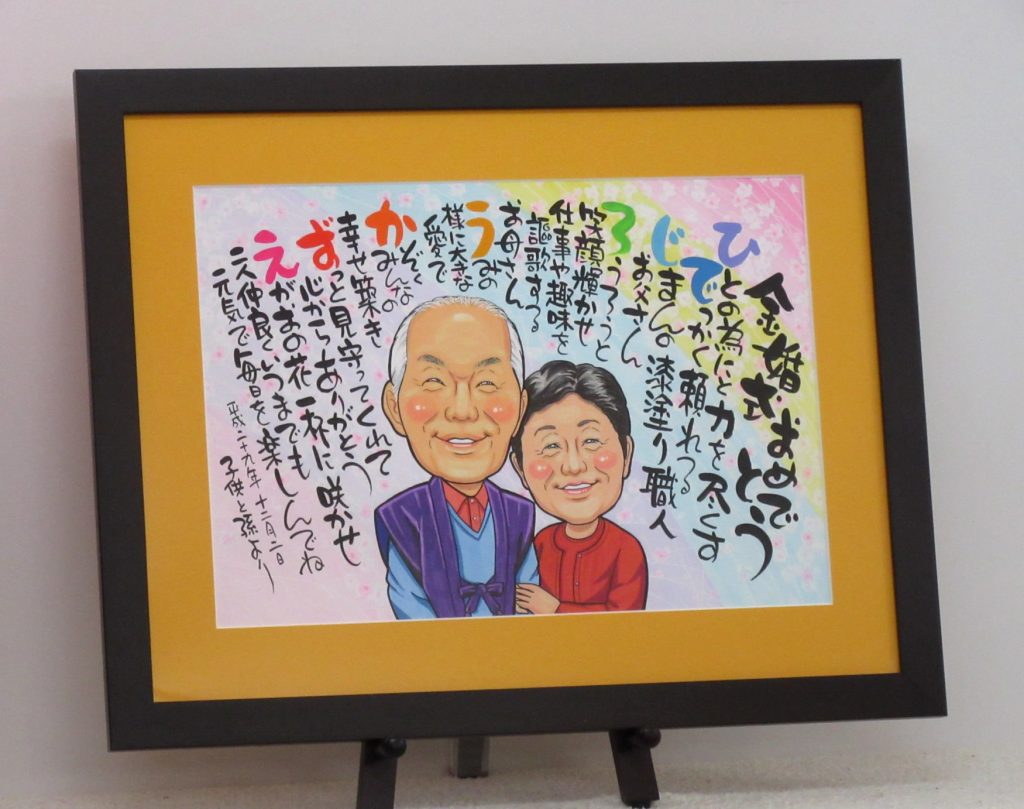 金婚式おめでとう
ひとの為にと力を尽くす
でっかく頼れる
じまんの漆塗り職人
お父さん
ろうろうと
笑顔輝かせ
仕事や趣味を
謳歌する
お母さん
うみの
様に大きな
愛で
かぞく
みんなの
幸せ築き
ずっと見守ってくれて
心からありがとう
えがおの花一杯に咲かせ
二人仲良くいつまでも
元気で毎日を楽しんでね
平成二十九年 十二月二日
子供と孫より